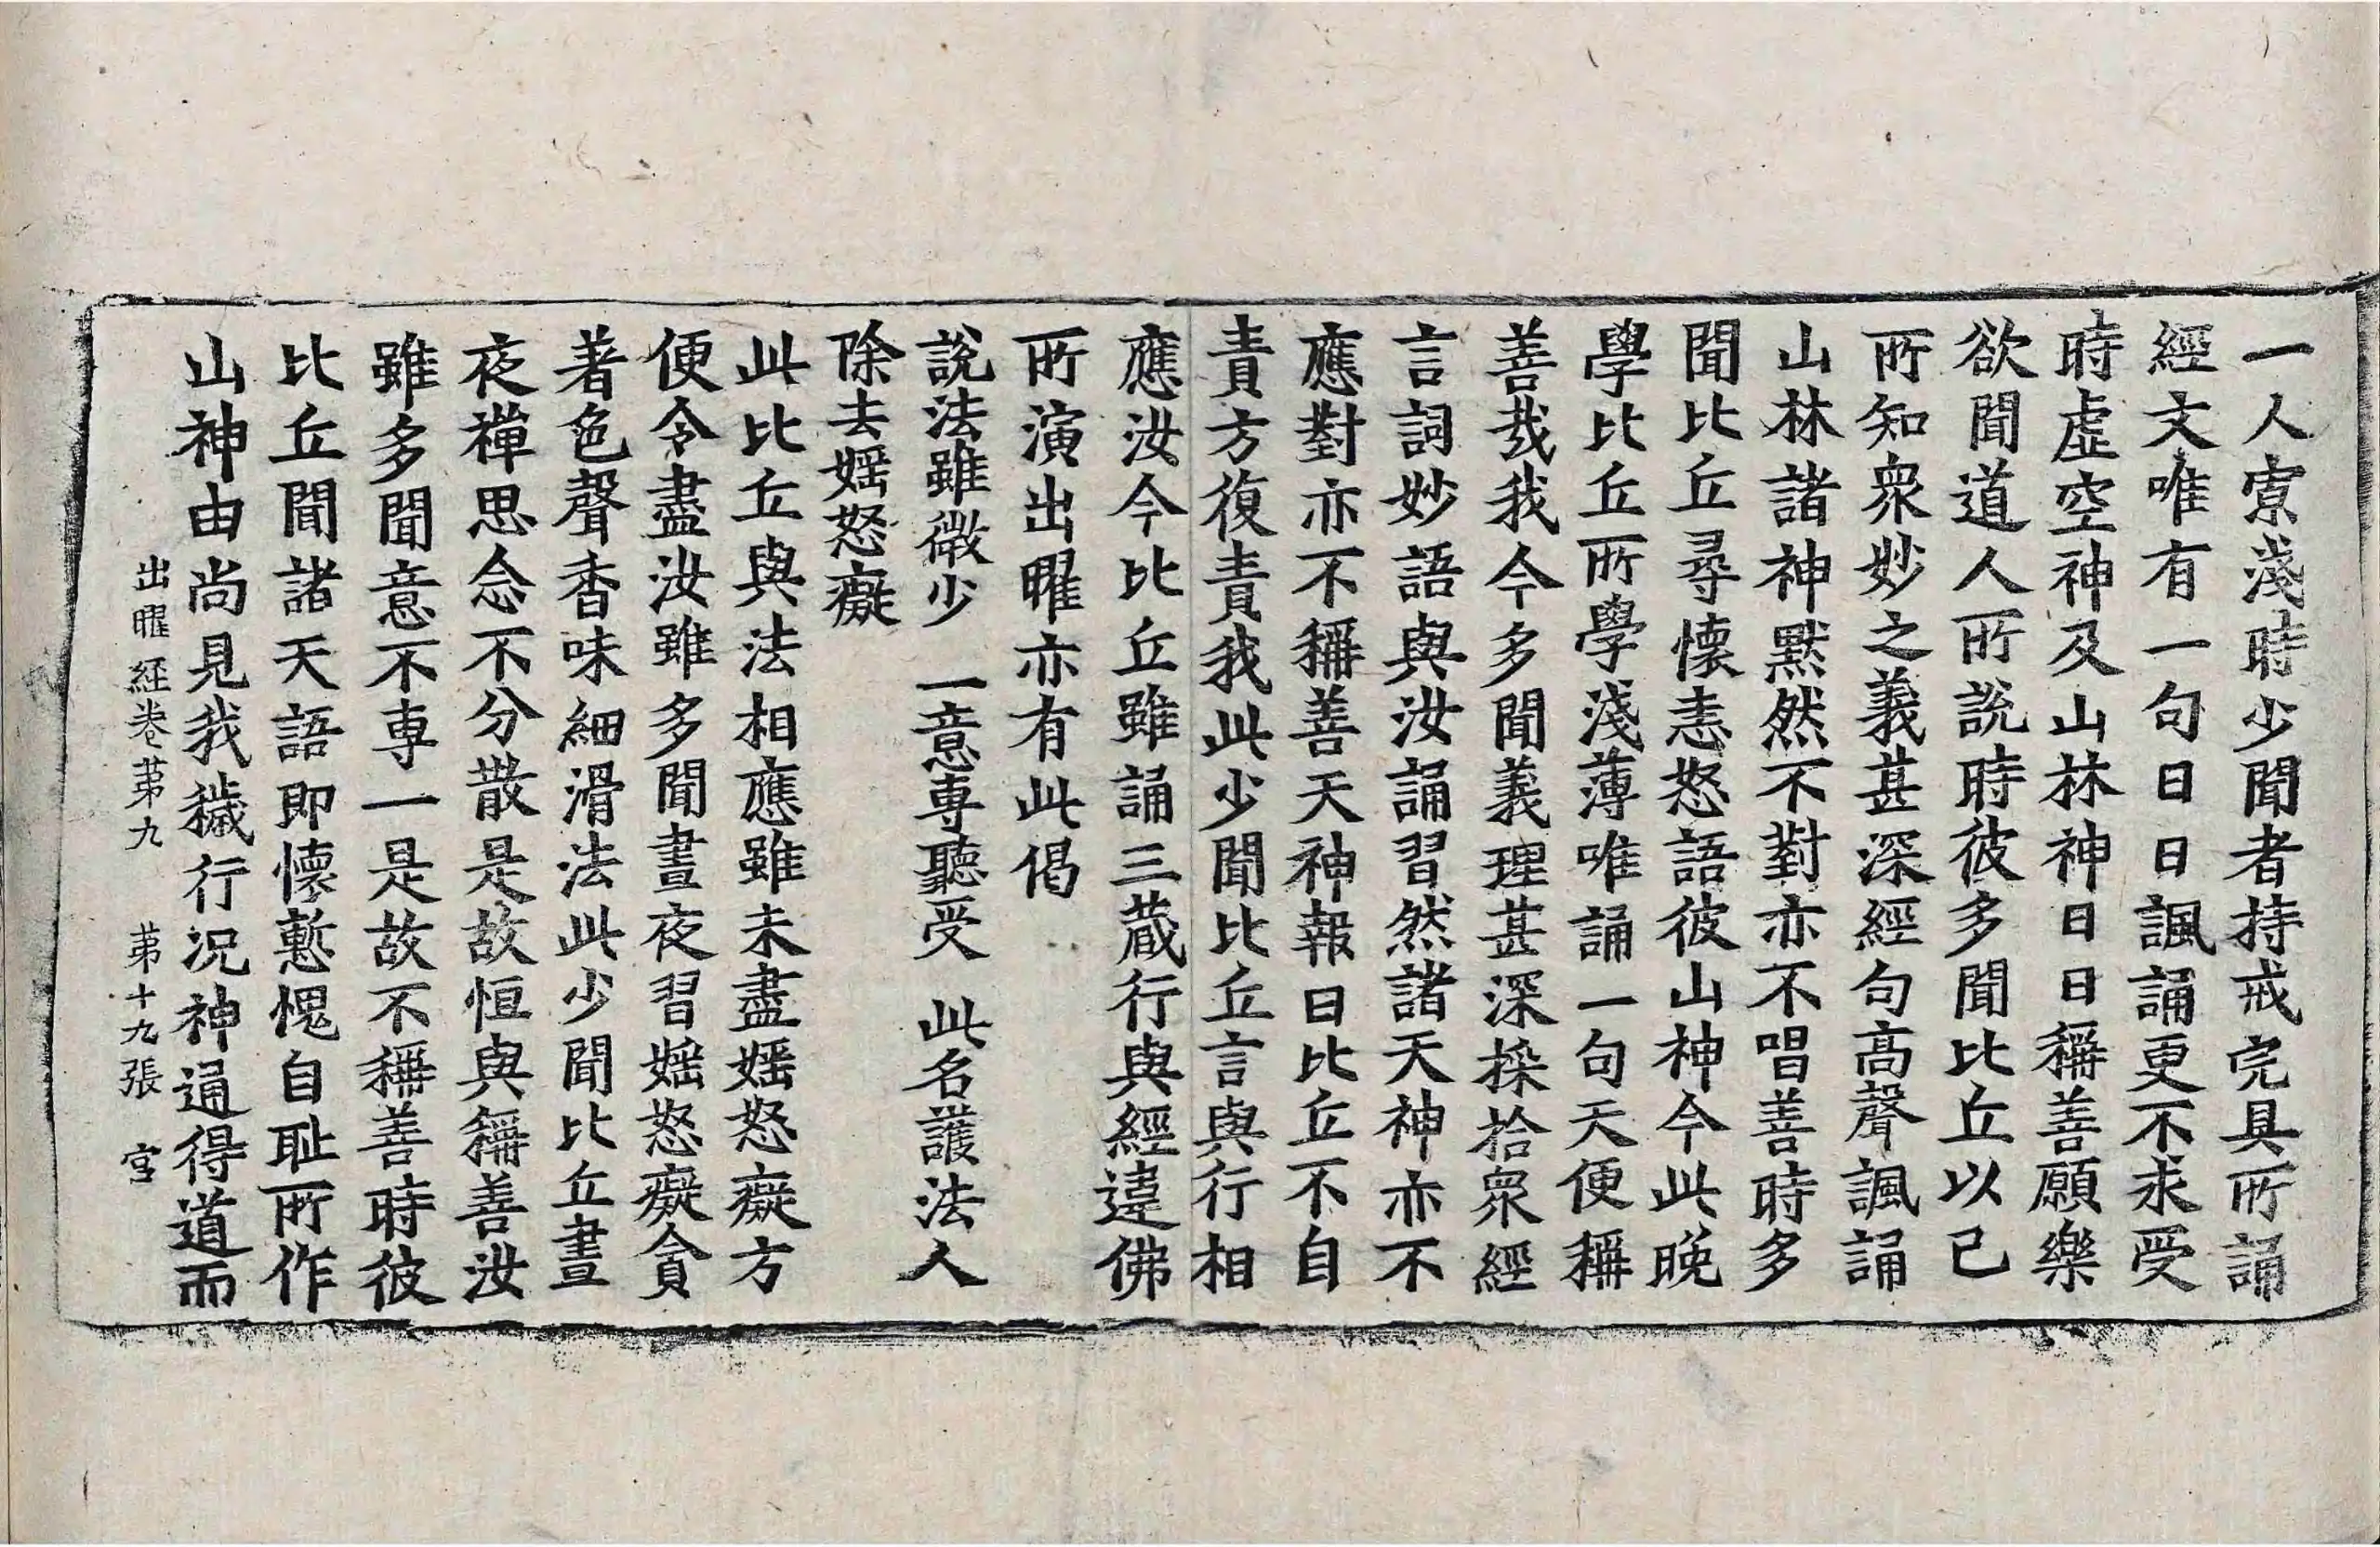 一人寡淺時少聞者持戒完具所誦
經文唯有一句日日諷誦更不求受
時虛空神及山林神日日稱善願樂
欲聞道人所說時彼多聞比丘以己
所知衆妙之義甚深經句高聲諷誦
山林諸神默然不對亦不唱善時多
聞比丘尋懷恚怒語彼山神今此晚
學比丘所學淺薄唯誦一句天便稱
善哉我今多聞義理甚深採拾衆經
言詞妙語與汝誦習然諸天神亦不
應對亦不稱善天神報曰比丘不自
責方復責我此少聞比丘言與行相
應汝今比丘雖誦三藏行與經違佛
所演出曜亦有此偈
說法雖微少　一意專聽受　此名護法人
除去婬怒癡
此比丘與法相應雖未盡婬怒癡方
便令盡汝雖多聞晝夜習婬怒癡貪
著色聲香味細滑法此少聞比丘晝
夜禪思念不分散是故恒與稱善汝
雖多聞意不專一是故不稱善時彼
比丘聞諸天語即懷慙愧自恥所作
山神由尚見我穢行況神通得道而
出曜経卷苐九　苐十九張　宮